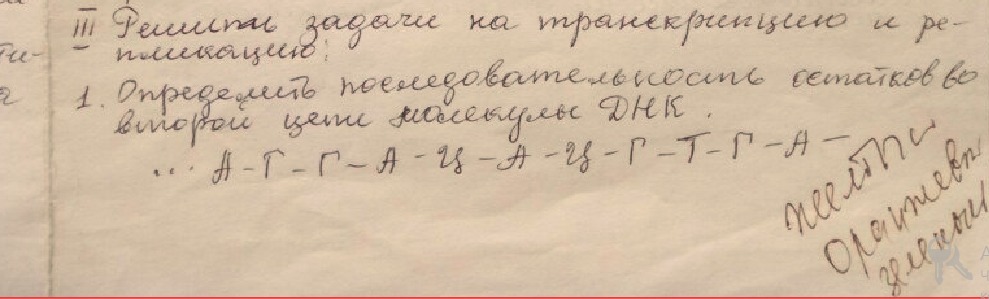 III Решить задачи на транскрипцию и ре-
пликацию:
1. Определить последовательность остатков во
второй цепи молекулы ДНК.
... А-Г-Г-А-Ц-А-Ц-Г-Т-Г-А-
желтый
Оранжевы
зеленый